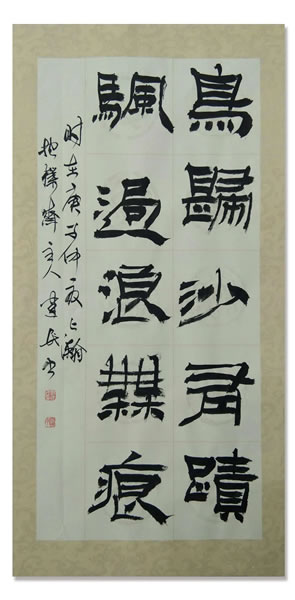 鳥歸沙有蹟
颿過浪無痕
时在庚子仲夏上瀚
抱樸齋主人建书